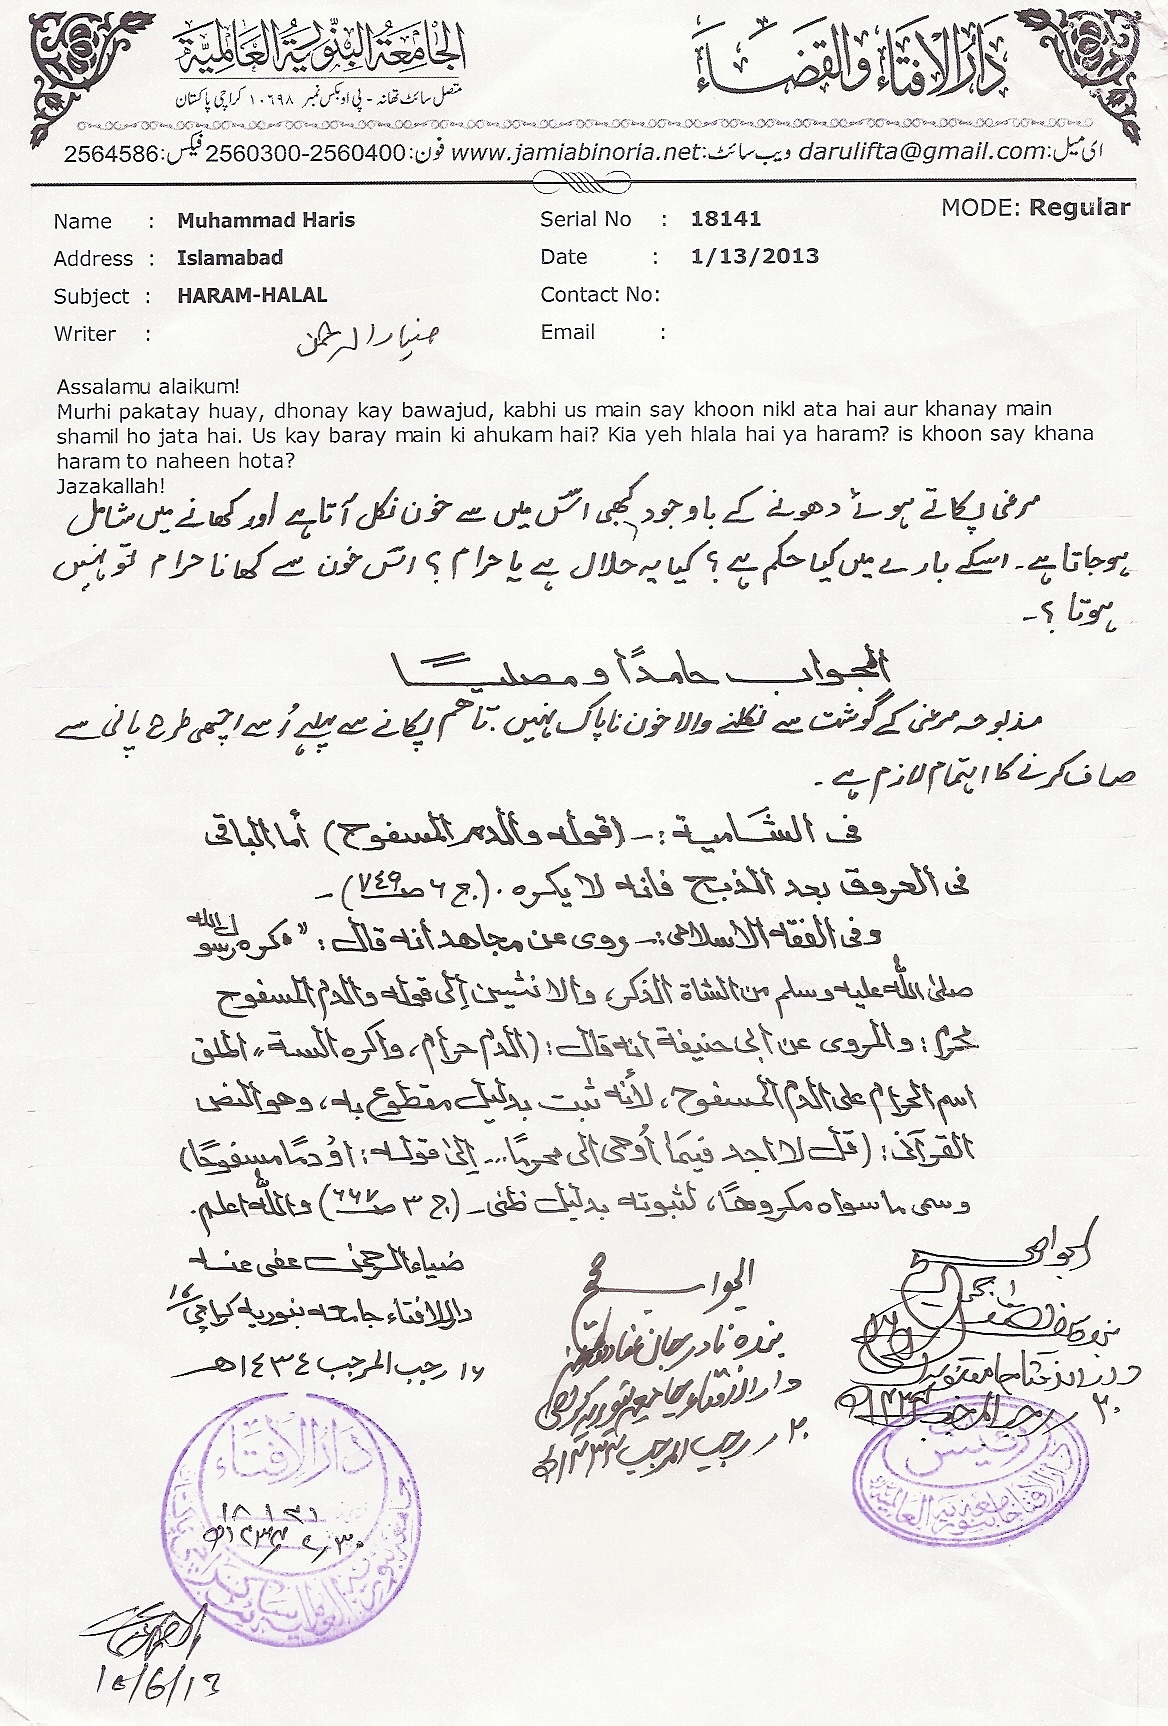 دَارُ الإفتَاء والقضَاء
الجَامعَة البِنّوريَة العَالميَّة
متصل سائٹ تھانہ - پی او بکس نمبر ۱۰۶۹۸ کراچی پاکستان
ای میل:darulifta@gmail.com ویب سائٹ:www.jamiabinoria.net فون:2560300-2560400 فیکس:2564586
MODE: Regular
Name : Muhammad Haris Serial No : 18141
Address : Islamabad Date : 1/13/2013
Subject : HARAM-HALAL Contact No:
Writer : ضیاء الرحمن Email :
Assalamu alaikum!
Murhi pakatay huay, dhonay kay bawajud, kabhi us main say khoon nikl ata hai aur khanay main
shamil ho jata hai. Us kay baray main ki ahukam hai? Kia yeh hlala hai ya haram? is khoon say khana
haram to naheen hota?
Jazakallah!
مرغی پکاتے ہوئے دھونے کے باوجود کبھی اس میں سے خون نکل آتا ہے اور کھانے میں شامل
ہوجاتا ہے۔ اسکے بارے میں کیا حکم ہے؟ کیا یہ حلال ہے یا حرام؟ اس خون سے کھانا حرام تو نہیں
ہوتا؟۔
الجواب حامدًا ومصلیًا
مذبوحہ مرغی کے گوشت سے نکلنے والا خون ناپاک نہیں۔ تاھم پکانے سے پہلے اُسے اچھی طرح پانی سے
صاف کرنے کا اہتمام لازم ہے۔
فی الشامیة:۔ (قوله والدم المسفوح) أما الباقی
فی العروق بعد الذبح فانه لا یکره۔ (ج ۶ ص ۷٤۹)۔
وفی الفقه الاسلامی:۔ روی عن مجاهد أنه قال: "کره رسول الله
صلی الله علیه وسلم من الشاة الذکر، والانثیین إلی قوله والدم المسفوح
محرم: والمروی عن ابی حنیفة انه قال: (الدم حرام، واکره الستة" اطلق
اسم الحرام علی الدم المسفوح، لأنه ثبت بدلیل مقطوع به، وهو النص
القرآنی: (قل لا اجد فیما أوحی الی محرمًا... إلی قوله: اَوْ دمًا مسفوحًا)
وسمی ما سواه مکروهًا، لثبوته بدلیل ظنی۔ (ج ۳ ص ۶۶۷) والله اعلم۔
ضیاء الرحمٰن عفی عنه
دارالافتاء جامعه بنوریه کراچی ۱۶
۱۶ رجب المرجب ۱٤۳٤ھ
الجواب صحیح
بندہ نادر جان
دارالافتاء جامعہ بنوریہ کراچی
۲۰ رجب المرجب ۱۴۳۴ھ
الجواب صحیح
دارالافتاء جامعہ بنوریہ
۲۰ رجب المرجب ۱۴۳۴ھ
رئیس
دار الافتاء جامعة بنورية العالمية
دَارُ الإفتَاء